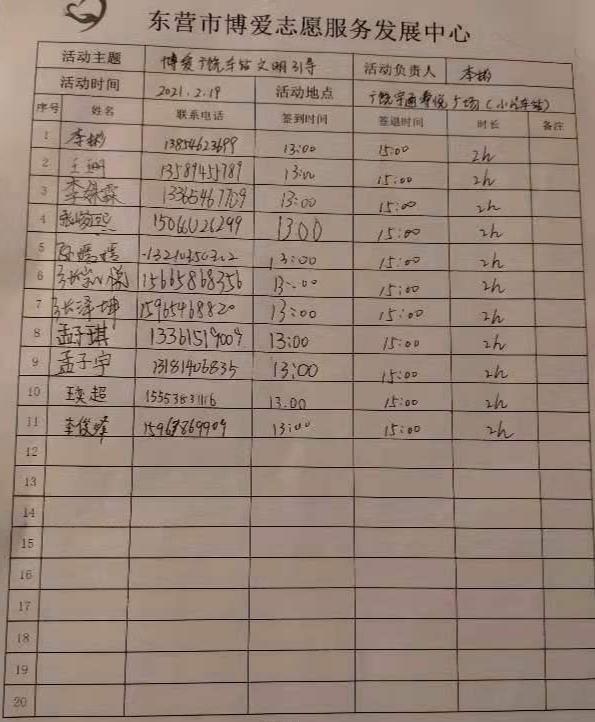 东营市博爱志愿服务发展中心
活动主题 博爱广饶车站文明引导 活动负责人 李彬
活动时间 2021.2.19 活动地点 广饶
序号 姓名 联系电话 签到时间 签退时间 时长 备注
1 李彬 13854623699 13:00 15:00 2h
2 王珊 13589455789 13:00 15:00 2h
3 李 霖 13:00 15:00 2h
4 15066026299 13:00 15:00 2h
5 13:00 15:00 2h
6 15665868356 13:00 15:00 2h
7 张泽坤 15965468820 13:00 15:00 2h
8 孟子琪 13:00 15:00 2h
9 孟子宇 13181406835 13:00 15:00 2h
10 超 13.00 15:00 2h
11 李俊峰 13:00 15:00 2h
12
13
14
15
16
17
18
19
20